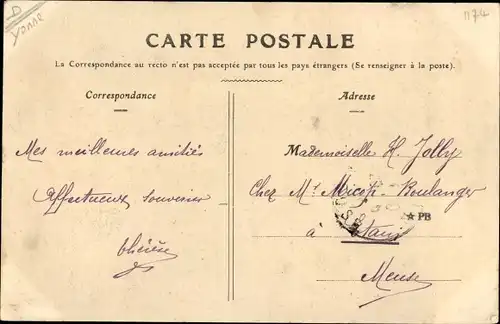 D
Yonne
1174
CARTE POSTALE
La Correspondance au recto n'est pas acceptée par tous les pays étrangers (Se renseigner à la poste).
Correspondance
Adresse
Mes meilleures amitiés
Affectueux souvenir
thérèse
Mademoiselle H. Jolly
Chez Mr Boulanger
★ PB
à
Meuse